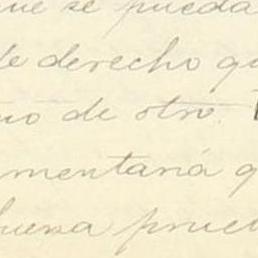 que se pueda
de derecho qu
no de otro.
mentaria q
buena prue